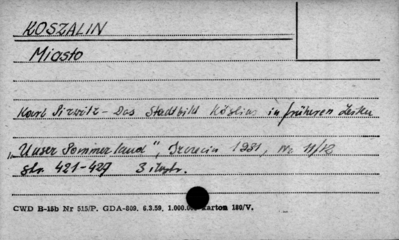 KOSZALIN
Miasto
Karl - Das Stadtbild Köslins in früheren Zeiten
"Unser Pommerland", Szczecin 1931, No 11/12
Str. 421-427 3 ilustr.
CWD B-15b Nr 515/P. GDA-809. 6.3.59. 1.000.0 Karton 180/V.